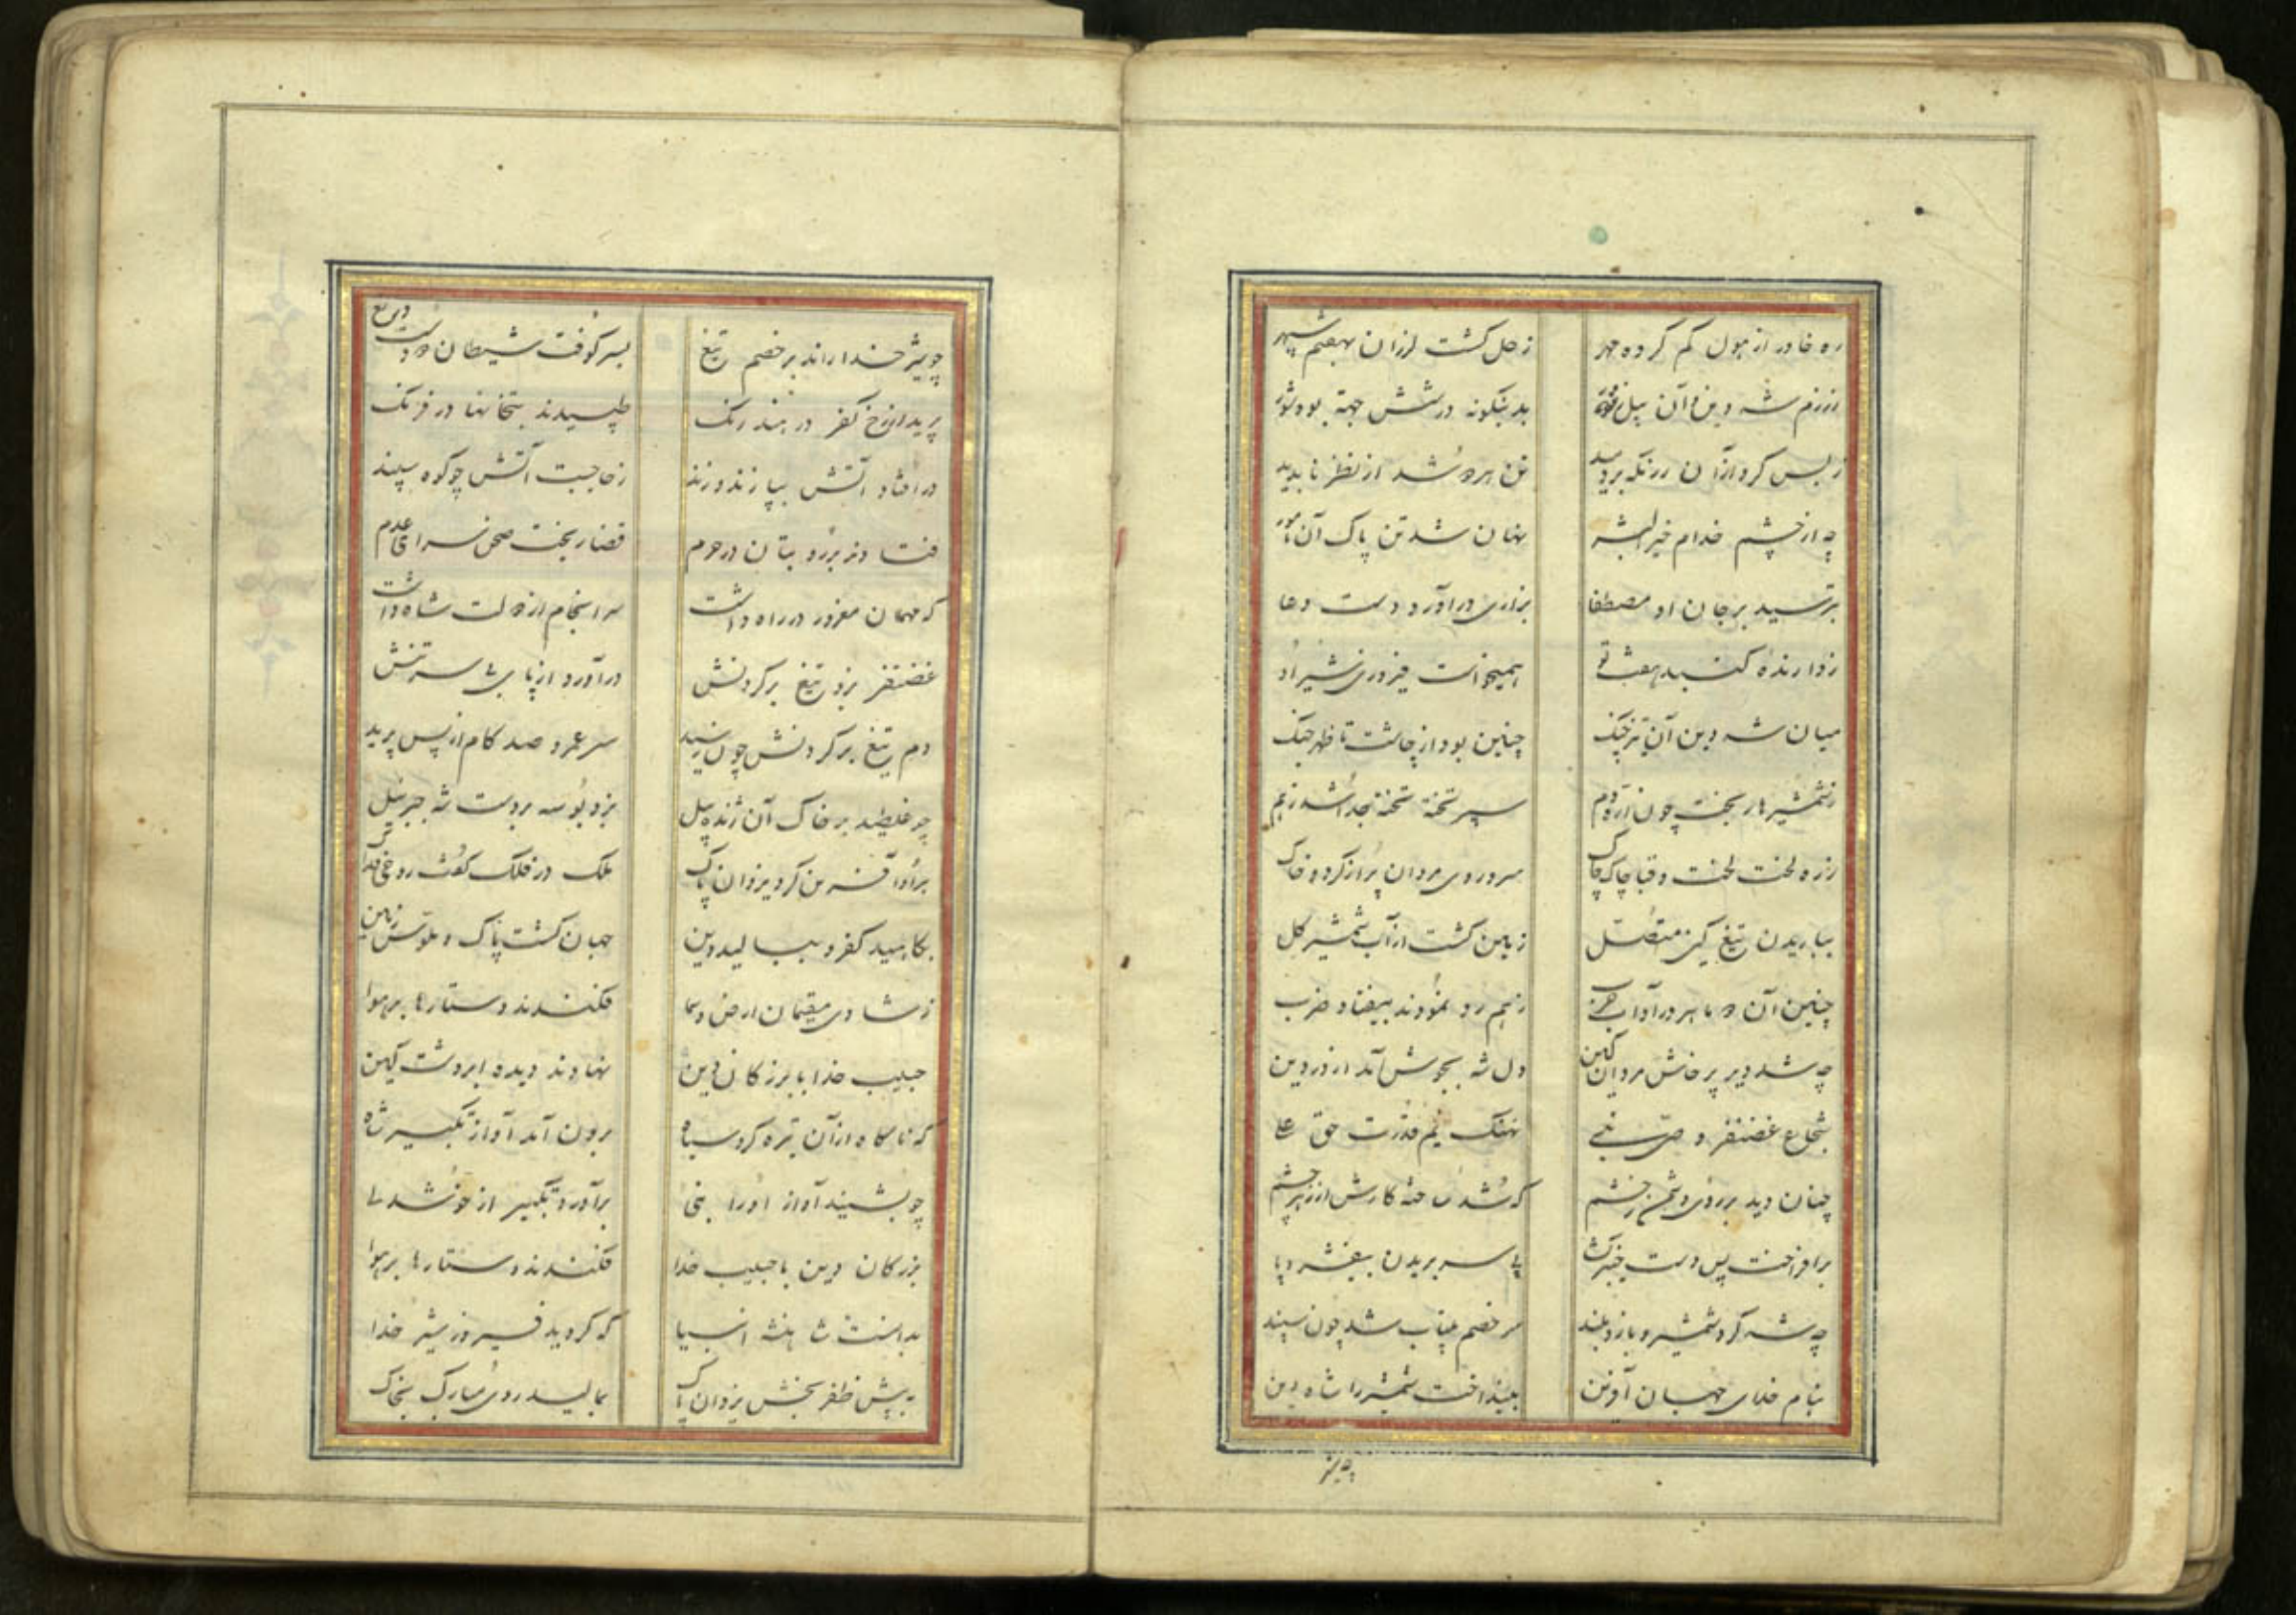 ره خاور از هول گم کرده مهر زحل گشت لرزان بهفتم سپهر
ز رزم شه دین و آن پیل زور بدینگونه در شش جهة بود شور
ز بس گرد از آن رزمگه بردمید تن هر دو شد از نظر ناپدید
چه از چشم خدام خیر البشر نهان شد تن پاک آن
بترسید بر جان او مصطفا بزاری درآورد دست دعا
ز دارنده گنبد همیخواست فیروزی شیر او
میان شه دین آن تیزچنگ چنین بود از چاشت تا ظهر جنگ
ز شمشیر ها ریخت چون اره دم سپر تخته تخته جدا شد ز هم
زره لخت لخت و قبا چاک چاک سر و روی مردان پر از گرد و خاک
بباریدن تیغ کین متصل زمین گشت از آب شمشیر گل
چنین آن دو ماهر در آداب حرب ز هم رد نمودند بیفتاد ضرب
چه شد دیر پرخاش مردان کین دل شه بجوش آمد از درد دین
شجاع غضنفر وصی نبی نهنگ یم قدرت حق علی
چنان دید بر روی دشمن ز خشم که شد ساخته کارش از زهر چشم
برافراخت پس دست خیبر گشا پی سر بریدن بیفشرد پا
چه شه کرد شمشیر و بازو بلند سر خصم بیتاب شد چون سپند
بنام خدای جهان آفرین بینداخت شمشیر را شاه دین
چه شیر
چو شیر خدا راند بر خصم تیغ بسر کوفت شیطان دو دست دریغ
پرید از رخ کفر در هند رنگ طپیدند بتخانها در فرنگ
در افتاد آتش بپازند و زند ز جا جست آتش چو کوه سپند
فتادند بر رو بتان در حرم قضا ریخت صحن سرای عدم
که مهمان مغرور در راه داشت سرانجام از دولت شاه داشت
غضنفر بزد تیغ بر گردنش درآورد از پای بی سر تنش
دم تیغ بر گردنش چون رسید سر عمرو صد کام از پس پرید
چو غلطید بر خاک آن ژنده پیل بزد بوسه بر دست شه جبرئیل
برو آفرین کرد یزدان پاک ملک در فلک گفت روحی فداک
بکاهید کفر و ببالید دین جهان گشت پاک و ملوث زمین
ز شادی مقیمان ارض و سما فکندند دستارها بر هوا
حبیب خدا با بزرگان دین نهادند دیده ابر دشت کین
که ناگاه از آن تیره گرد سپاه برون آمد آواز تکبیر شاه
چو بشنید آواز او را نبی برآورد تکبیر از خوشدلی
بزرگان دین با حبیب خدا فکندند دستارها بر هوا
بدانست شاهنشه انبیا که گردید فیروز شیر خدا
به پیش ظفر بخش یزدان پاک بمالید روی مبارک بخاک